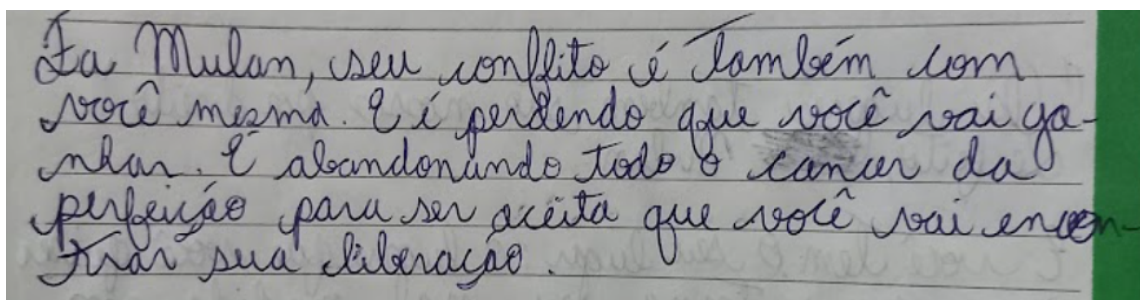 Fa Mulan, seu conflito é também com
você mesma. E é perdendo que você vai ga-
nhar. É abandonando todo o cancer da
perfeição para ser aceita que você vai encon-
trar sua liberação.